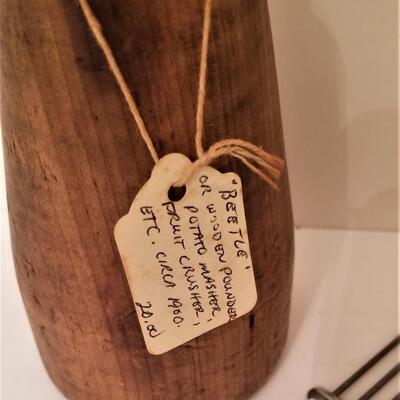 "BEETLE",
OR WOODEN POUNDER
POTATO MASHER,
FRUIT CRUSHER,
ETC. CIRCA 1900.
20.00